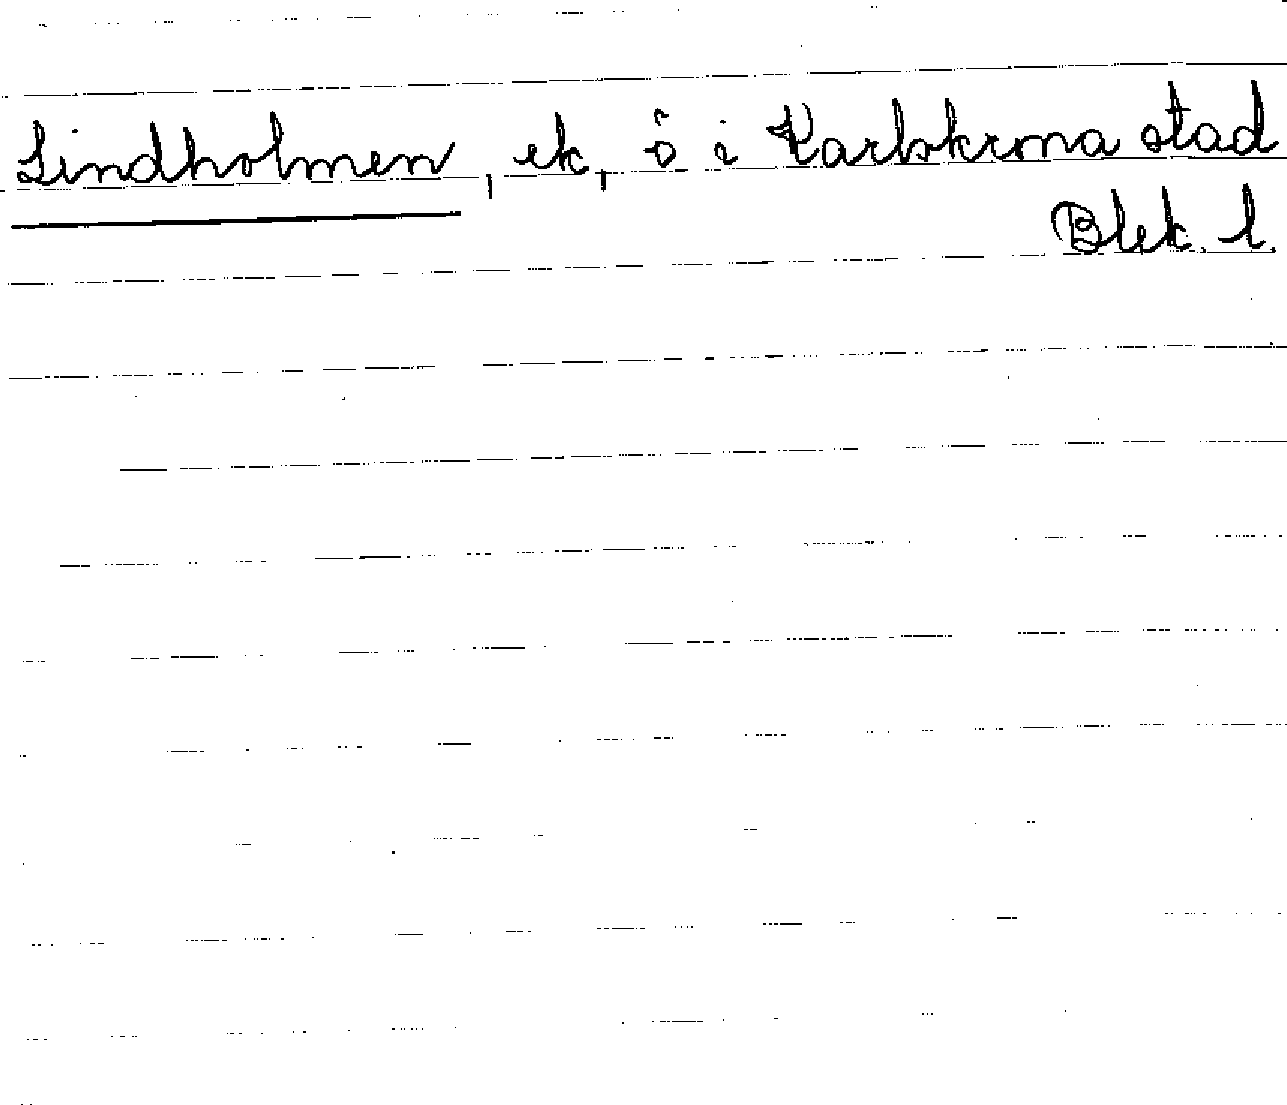 Lindholmen, ek, ö i Karlskrona stad
Blek. l.